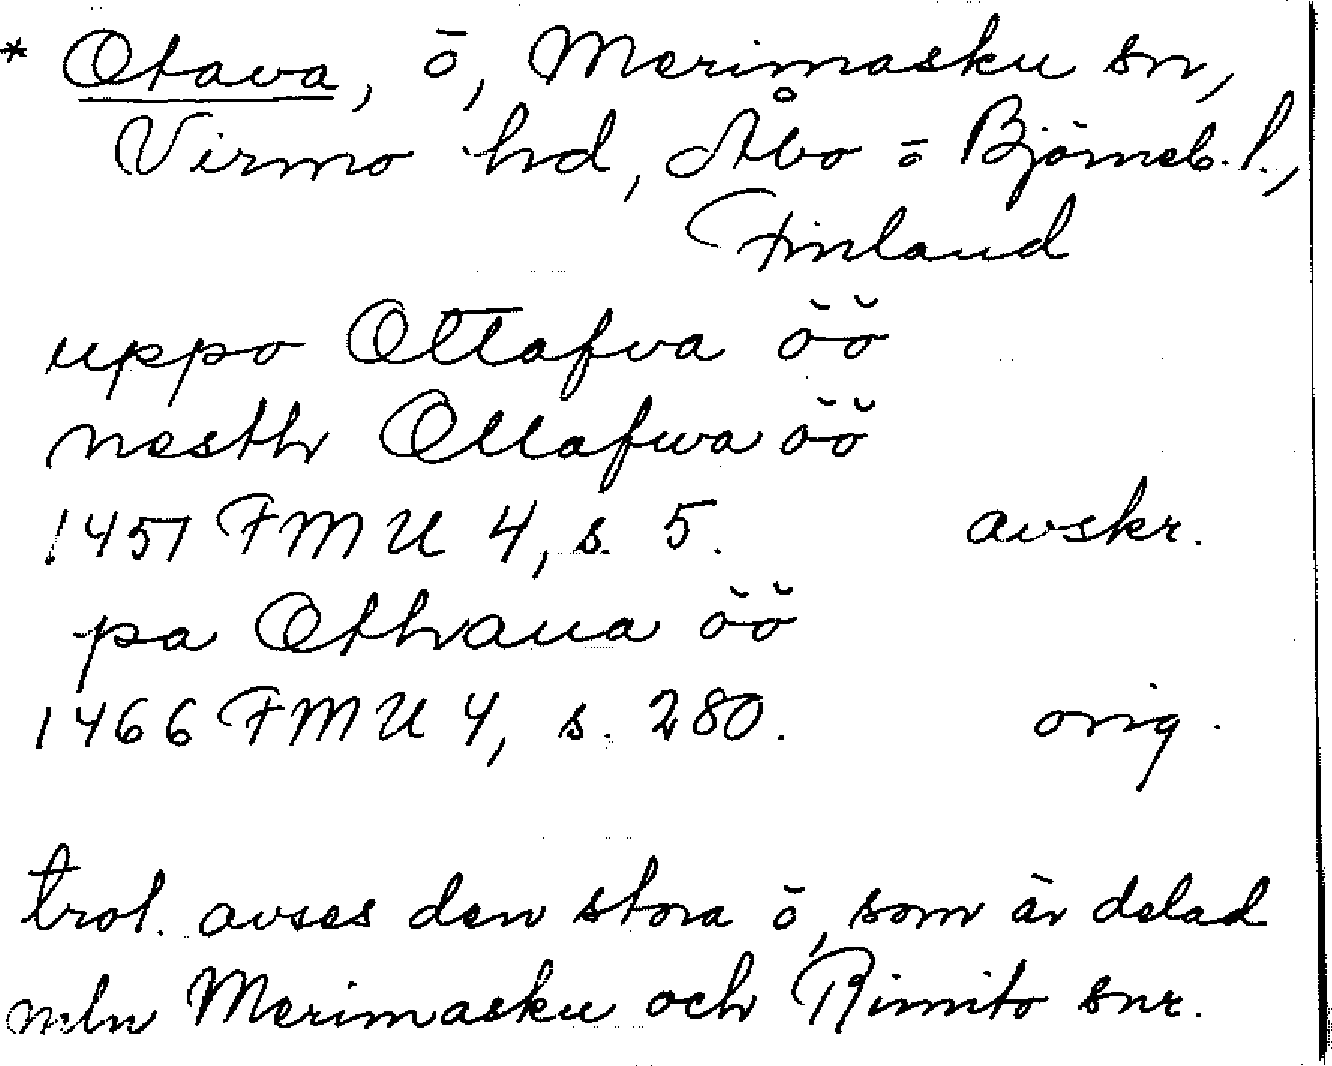 * Otava, ö, Merimasku sn,
Virmo hd, Åbo o Björneb. l.,
Finland
uppo Ottafva öö
nesth Ottafwa öö
1451 FMU 4, s. 5. avskr.
pa Othaua öö
1466 FMU 4, s. 280. orig.
trol. avses den stora ö, som är delad
mln Merimasku och Rimito snr.